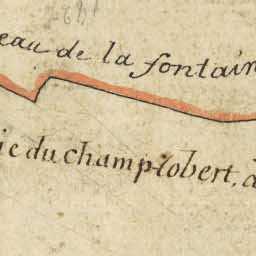 eau de la fontain
ie du champ robert. a